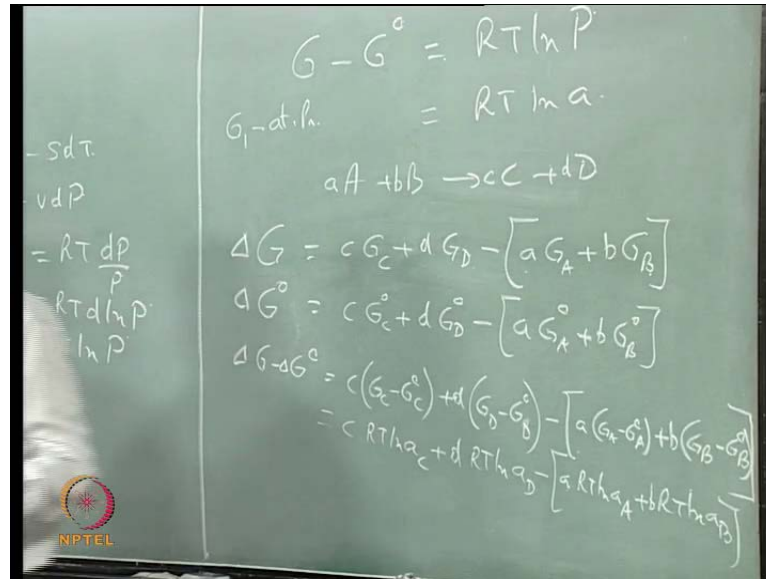 - SdT.
VdP
= RT dP/P
RTdlnP
lnP
G - G° = RT ln P
G₁ - at. Pr. = RT ln a.
aA + bB → cC + dD
ΔG = cG_C + dG_D - [aG_A + bG_B]
ΔG° = cG°_C + dG°_D - [aG°_A + bG°_B]
ΔG-ΔG° = c(G_C-G°_C) + d(G_D-G°_D) - [a(G_A-G°_A) + b(G_B-G°_B)]
= c RTln a_C + d RTln a_D - [a RTln a_A + bRTln a_B]
NPTEL